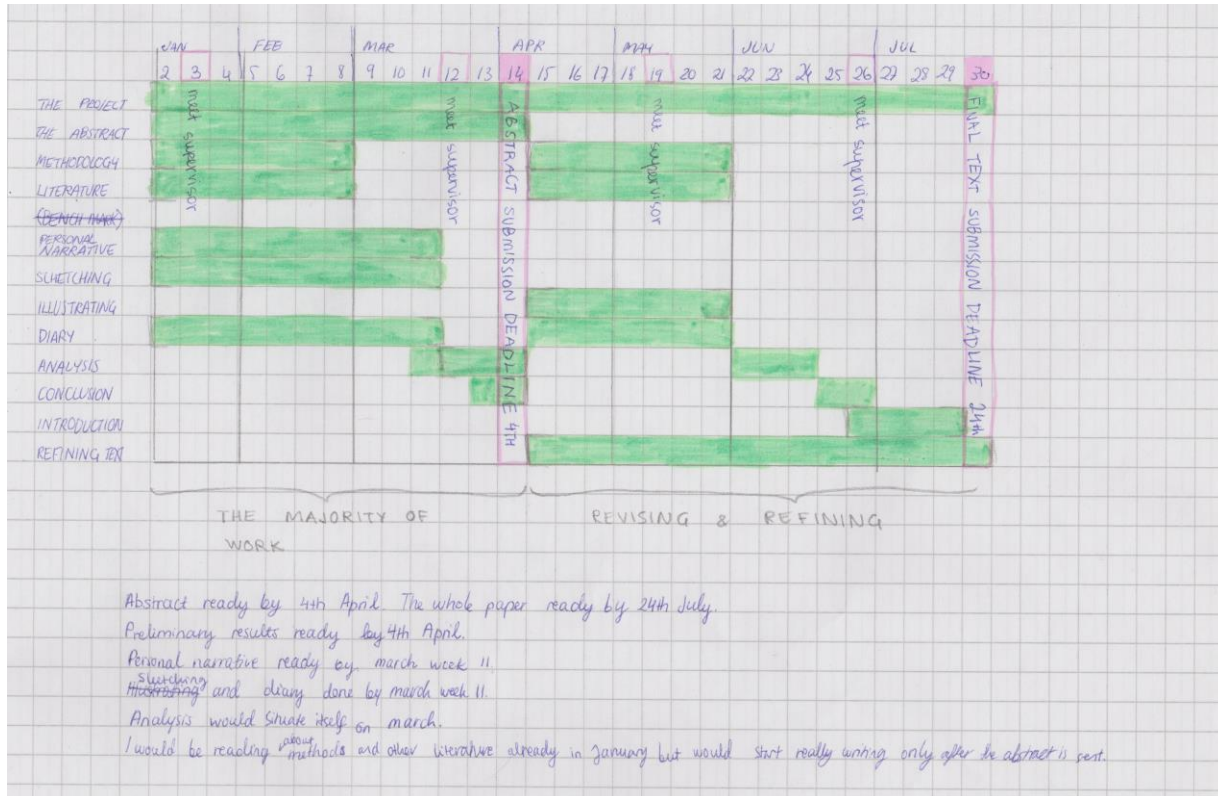 JAN FEB MAR APR MAY JUN JUL
2 3 4 5 6 7 8 9 10 11 12 13 14 15 16 17 18 19 20 21 22 23 24 25 26 27 28 29 30
THE PROJECT
THE ABSTRACT
METHODOLOGY
LITERATURE
(BENCH MARK)
PERSONAL
NARRATIVE
SCHETCHING
ILLUSTRATING
DIARY
ANALYSIS
CONCLUSION
INTRODUCTION
REFINING TEXT
meet supervisor
meet supervisor
ABSTRACT SUBMISSION DEADLINE 4TH
meet supervisor
meet supervisor
FINAL TEXT SUBMISSION DEADLINE 24th
THE MAJORITY OF
WORK
REVISING & REFINING
Abstract ready by 4th April. The whole paper ready by 24th July.
Preliminary results ready by 4th April.
Personal narrative ready by march week 11.
Sketching and diary done by march week 11.
Analysis would situate itself on march.
I would be reading about methods and other literature already in January but would start really writing only after the abstract is sent.